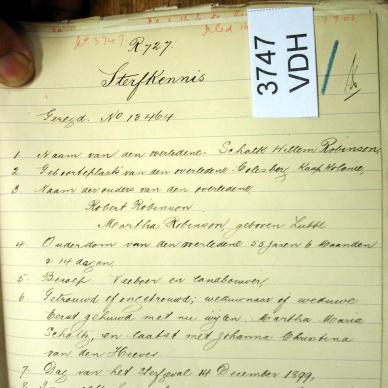 No 3747 filed in 1902
R 727.
3747
VDH
Sterfkennis
Geregd. No 13464
1 Naam van den overledene. Schalk Willem Robinson,
2 Geboorteplaats van den overledene. Colesberg Kaap Kolonie,
3 Naam der ouders van den overledene
Robert Robinson
Martha Robinson geboren Lubbe
4. Ouderdom van den overledene 55 jaren 6 Maanden
& 14 dagen.
5. Beroep Veeboer en landbouwer,
6 Getrouwd of ongetrouwd; weduwnaar of weduwe
Eerst gehuwd met nu wijlen Martha Maria
Scholtz, en laatst met Johanna Christina
van den Heever.
7. Dag van het Sterfgeval 14 December 1899,